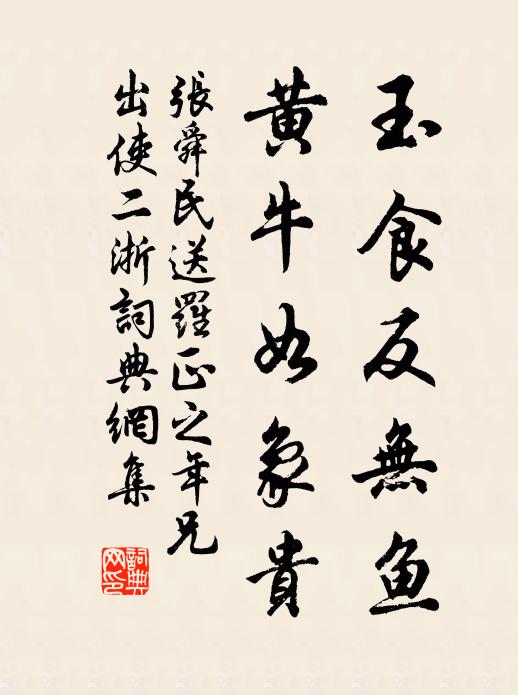 玉食反無魚
黄牛如象貴
張舜民送羅正之年兄
出使二浙詞典網集
詞典
网印